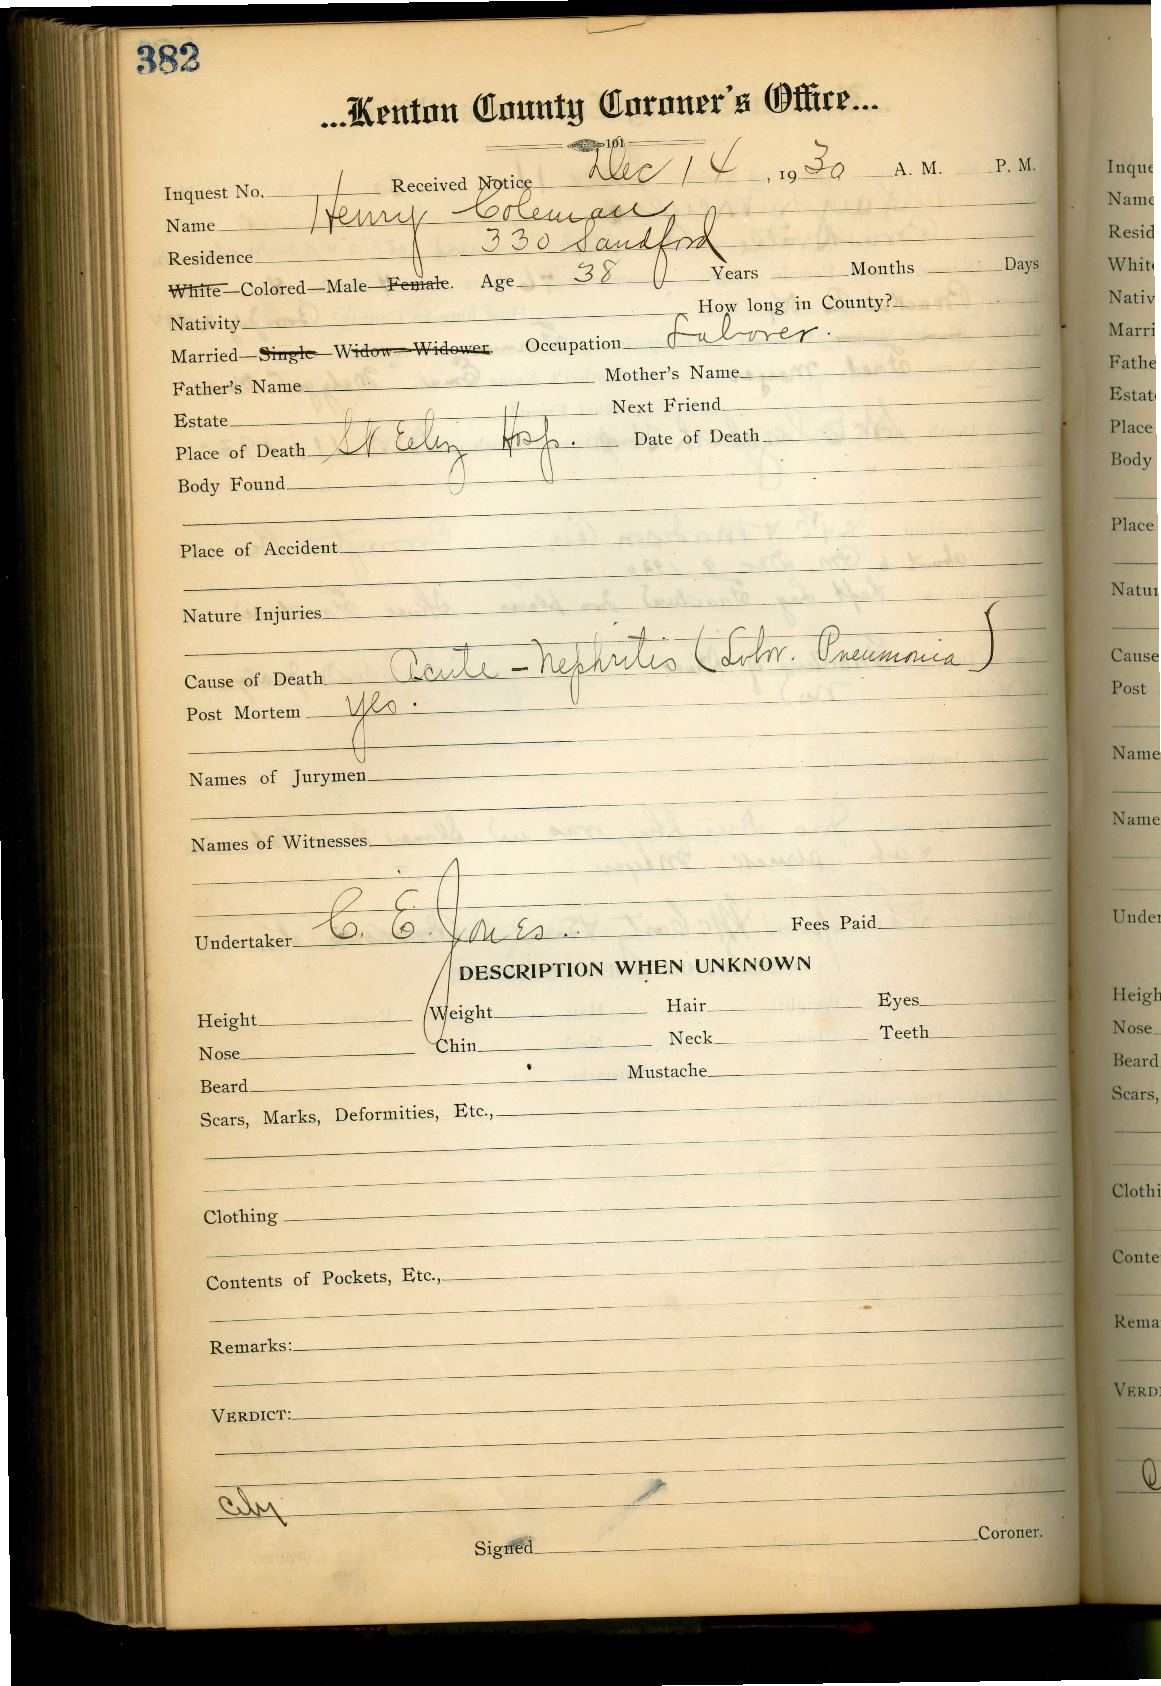 382
...Kenton County Coroner's Office...
101
Inquest No. 1 Received Notice Dec 14, 1930 A. M. P. M.
Name Henry Coleman
Residence 330 Sandford
White—Colored—Male—Female. Age 38 Years Months Days
Nativity How long in County?
Married—Single—Widow—Widower. Occupation Laborer.
Father's Name Mother's Name
Estate Next Friend
Place of Death St Eliz Hosp. Date of Death
Body Found
Place of Accident
Nature Injuries
Cause of Death Acute - Nephritis (Lobr. Pneumonia)
Post Mortem yes.
Names of Jurymen
Names of Witnesses
Undertaker C. E. Jones. Fees Paid
DESCRIPTION WHEN UNKNOWN
Height Weight Hair Eyes
Nose Chin Neck Teeth
Beard Mustache
Scars, Marks, Deformities, Etc.,
Clothing
Contents of Pockets, Etc.,
Remarks:
VERDICT:
City
Signed Coroner.
Inque
Name
Resid
White
Nativ
Marri
Fathe
Estat
Place
Body
Place
Natur
Cause
Post
Name
Name
Under
Heigh
Nose
Beard
Scars,
Clothi
Conte
Rema
VERD